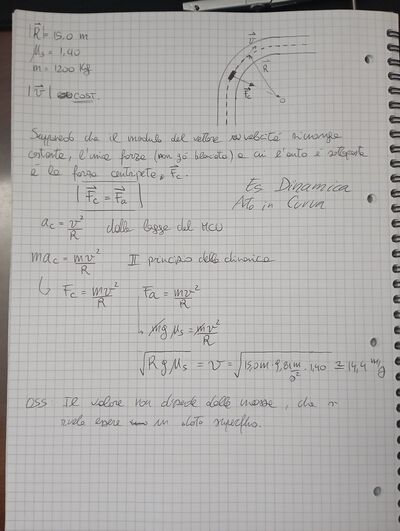 |R⃗| = 15,0 m
μs = 1,40
m = 1200 Kg
|v⃗| COST.
v⃗
R⃗
F⃗c
O
Supponendo che il modulo del vettore velocità rimanga
costante, l'unica forza (non già bilanciata) a cui l'auto è sottoposta
è la forza centripeta, F⃗c.
| F⃗c = F⃗a |
Es Dinamica
Auto in Curva
ac = v²/R dalla legge del MCU
mac = mv²/R II principio della dinamica
Fc = mv²/R Fa = mv²/R
mgμs = mv²/R
√(Rgμs) = v = √(15,0m · 9,81 m/s² · 1,40) ≅ 14,4 m/s
OSS Il valore non dipende dalla massa, che si
rivela essere un dato superfluo.